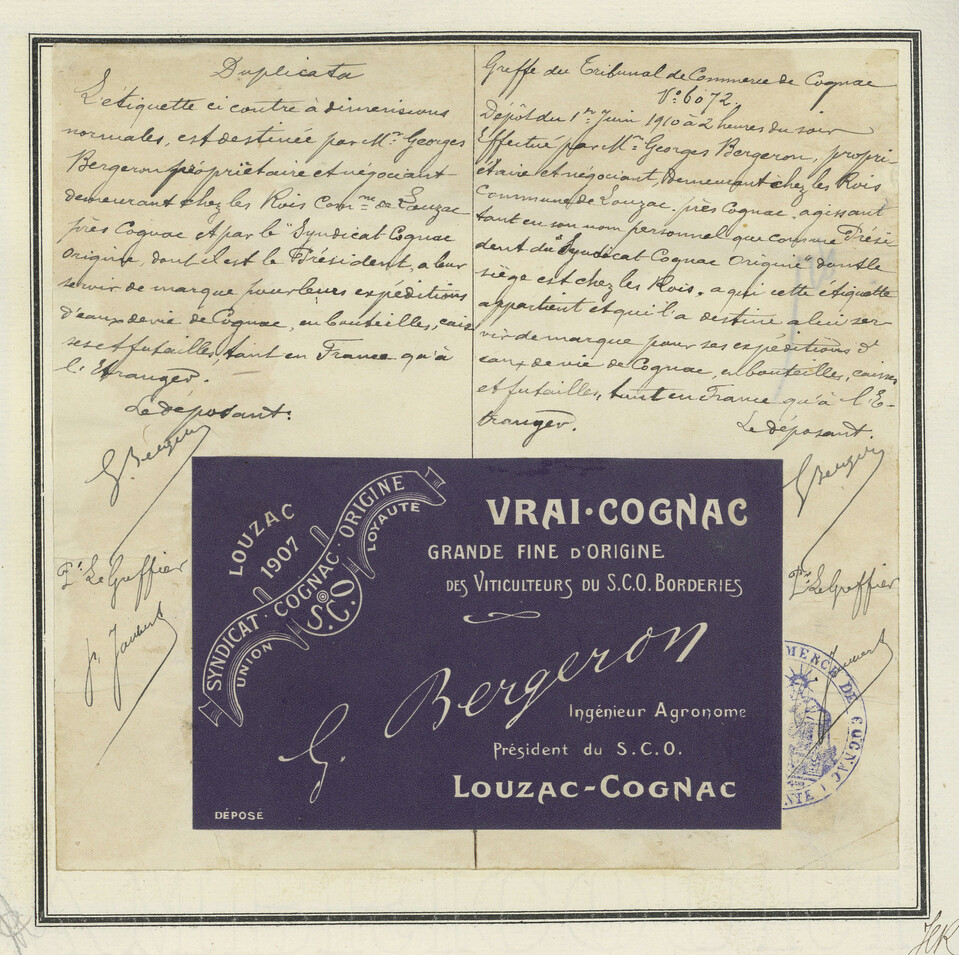 Duplicata
L'étiquette ci contre à dimensions
normales, est destinée par Mr. Georges
Bergeron propriétaire et négociant
demeurant chez les Rois Comne de Louzac
près Cognac et par le "Syndicat Cognac
Origine, dont il est le Président, a leur
servir de marque pour leurs expéditions
d'eaux de vie de Cognac, en bouteilles, cais
ses et futailles, tant en France qu'à
l'Etranger.
Le déposant:
G. Bergeron
Pr. Le Greffier
Greffe du Tribunal de Commerce de Cognac
No. 6072.
Dépôt du 1er Juin 1910 à 2 heures du soir
Effectué par Mr. Georges Bergeron, propri-
étaire et négociant, demeurant chez les Rois
Commune de Louzac, près Cognac, agissant
tant en son nom personnel que comme Prési
dent du "Syndicat Cognac Origine" dont le
siège est chez les Rois, a qui cette étiquette
appartient et qu'il a destine a lui ser-
vir de marque pour ses expéditions d'
eaux de vie de Cognac, en bouteilles, caisses
et futailles, tant en France qu'à l'E-
tranger.
Le déposant.
G. Bergeron
Pr. Le Greffier
LOUZAC
1907
SYNDICAT · COGNAC · ORIGINE
UNION
S.C.O
LOYAUTÉ
VRAI·COGNAC
GRANDE FINE D'ORIGINE
DES VITICULTEURS DU S.C.O. BORDERIES
G. Bergeron
Ingénieur Agronome
Président du S.C.O.
LOUZAC-COGNAC
DÉPOSÉ
MERCE DE COGNAC
NTE